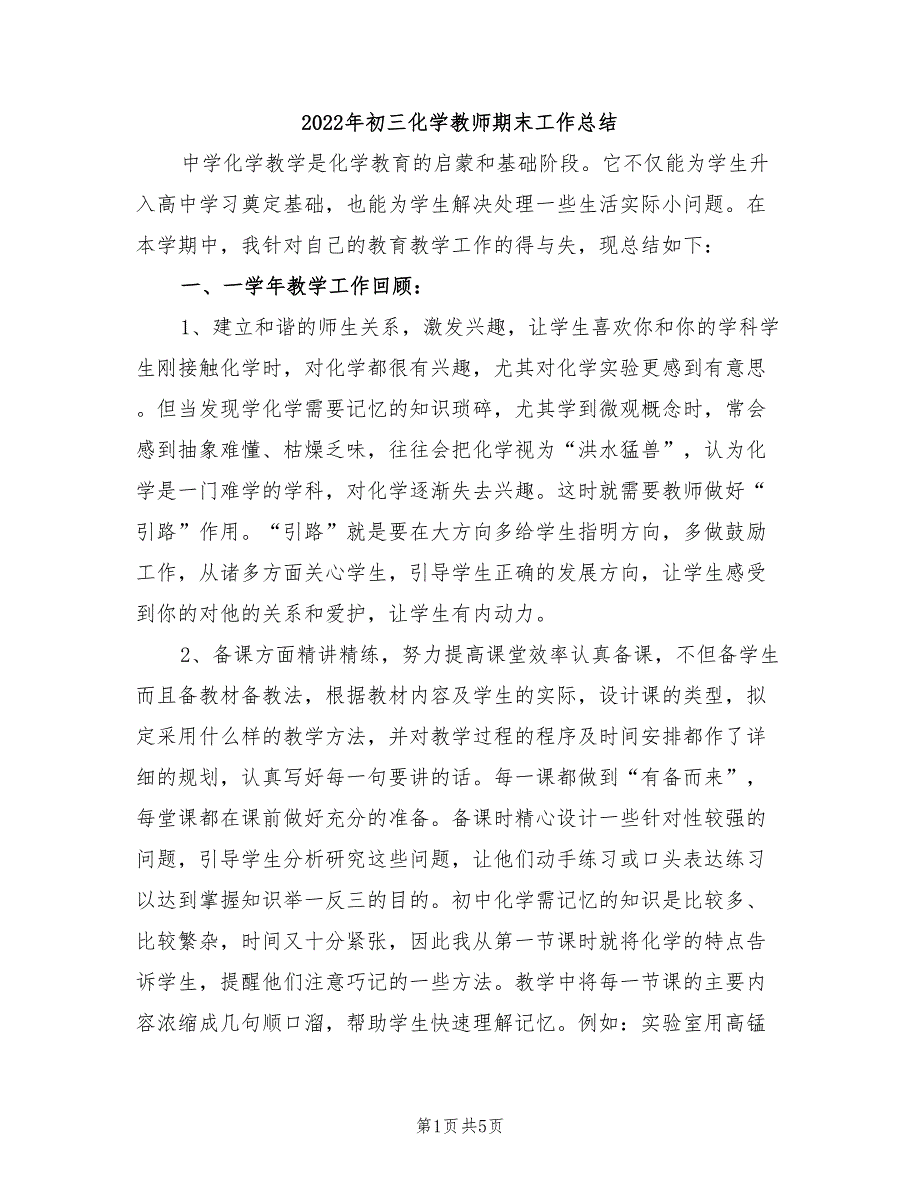 2022年初三化学教师期末工作总结
中学化学教学是化学教育的启蒙和基础阶段。它不仅能为学生升
入高中学习奠定基础，也能为学生解决处理一些生活实际小问题。在
本学期中，我针对自己的教育教学工作的得与失，现总结如下：
一、一学年教学工作回顾：
1、建立和谐的师生关系，激发兴趣，让学生喜欢你和你的学科学
生刚接触化学时，对化学都很有兴趣，尤其对化学实验更感到有意思
。但当发现学化学需要记忆的知识琐碎，尤其学到微观概念时，常会
感到抽象难懂、枯燥乏味，往往会把化学视为“洪水猛兽”，认为化
学是一门难学的学科，对化学逐渐失去兴趣。这时就需要教师做好“
引路”作用。“引路”就是要在大方向多给学生指明方向，多做鼓励
工作，从诸多方面关心学生，引导学生正确的发展方向，让学生感受
到你的对他的关系和爱护，让学生有内动力。
2、备课方面精讲精练，努力提高课堂效率认真备课，不但备学生
而且备教材备教法，根据教材内容及学生的实际，设计课的类型，拟
定采用什么样的教学方法，并对教学过程的程序及时间安排都作了详
细的规划，认真写好每一句要讲的话。每一课都做到“有备而来”，
每堂课都在课前做好充分的准备。备课时精心设计一些针对性较强的
问题，引导学生分析研究这些问题，让他们动手练习或口头表达练习
以达到掌握知识举一反三的目的。初中化学需记忆的知识是比较多、
比较繁杂，时间又十分紧张，因此我从第一节课时就将化学的特点告
诉学生，提醒他们注意巧记的一些方法。教学中将每一节课的主要内
容浓缩成几句顺口溜，帮助学生快速理解记忆。例如：实验室用高锰
第1页共5页